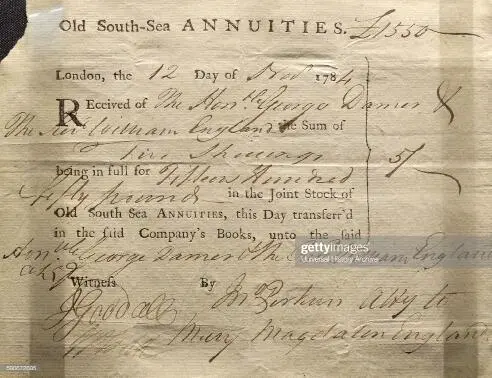 Old South-Sea ANNUITIES. £1550
London, the 12 Day of Nov 1784
RECeived of The Honble George Damer &
The Revd William England the Sum of
Five Shillings 5/
being in full for Fifteen Hundred
Fifty pounds in the Joint Stock of
Old South-Sea ANNUITIES, this Day transferr'd
in the said Company's Books, unto the said
Honble George Damer & The England
Witness By Jno Perkins Atty to
J Goodall Mary Magdalen England
gettyimages
Universal History Archive
590672695